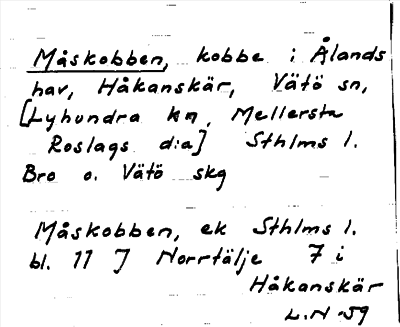 Måskobben, kobbe i Ålands
hav, Håkanskär, Vätö sn,
[Lyhundra kn, Mellersta
Roslags d:a] Sthlms l.
Bro o. Vätö skg
Måskobben, ek Sthlms l.
bl. 11 J Norrtälje 7 i
Håkanskär
L.N -59